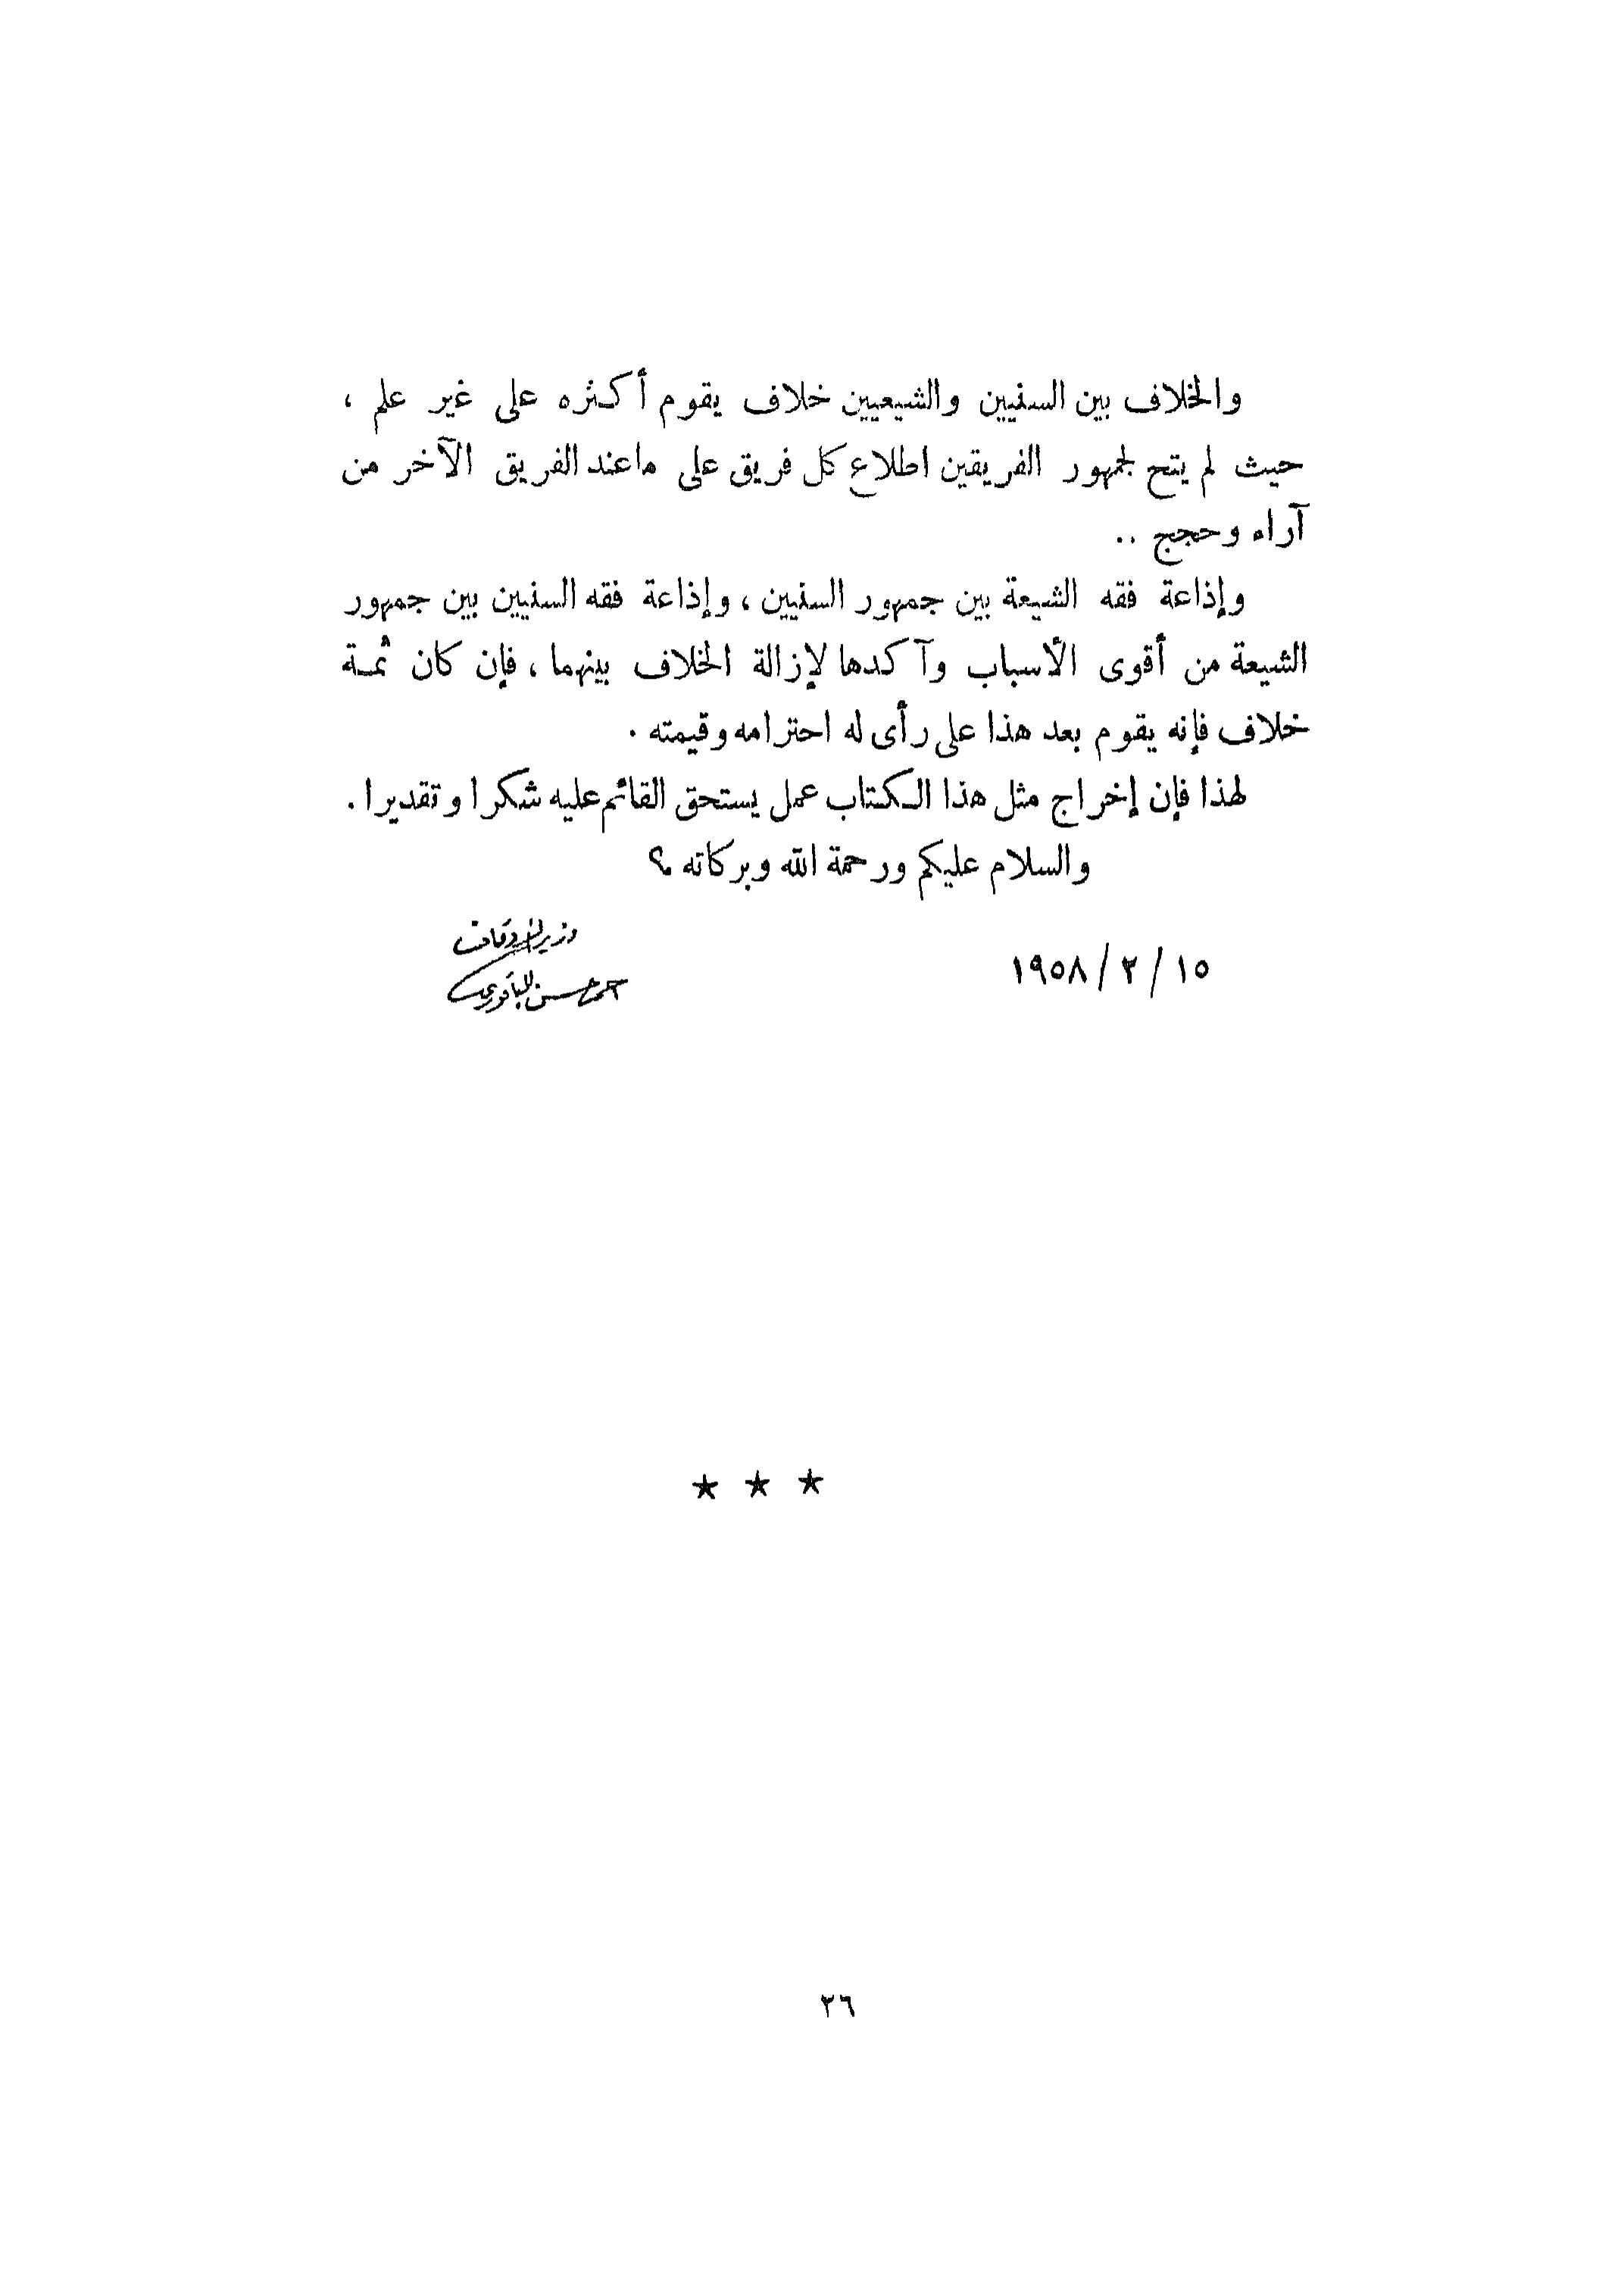 والخلاف بين السنيين والشيعيين خلاف يقوم أكثره على غير علم ،
حيث لم يتح لجمهور الفريقين اطلاع كل فريق على ماعند الفريق الآخر من
آراء وحجج ..
وإذاعة فقه الشيعة بين جمهور السنيين ، وإذاعة فقه السنيين بين جمهور
الشيعة من أقوى الأسباب وآكدها لإزالة الخلاف بينهما ، فإن كان ثمة
خلاف فإنه يقوم بعد هذا على رأى له احترامه وقيمته .
لهذا فإن إخراج مثل هذا الكتاب عمل يستحق القائم عليه شكرا وتقديرا .
والسلام عليكم ورحمة الله وبركاته ؟
١٥ / ٢ / ١٩٥٨
وزير الأوقاف
أحمد حسن الباقوري
★ ★ ★
٢٦